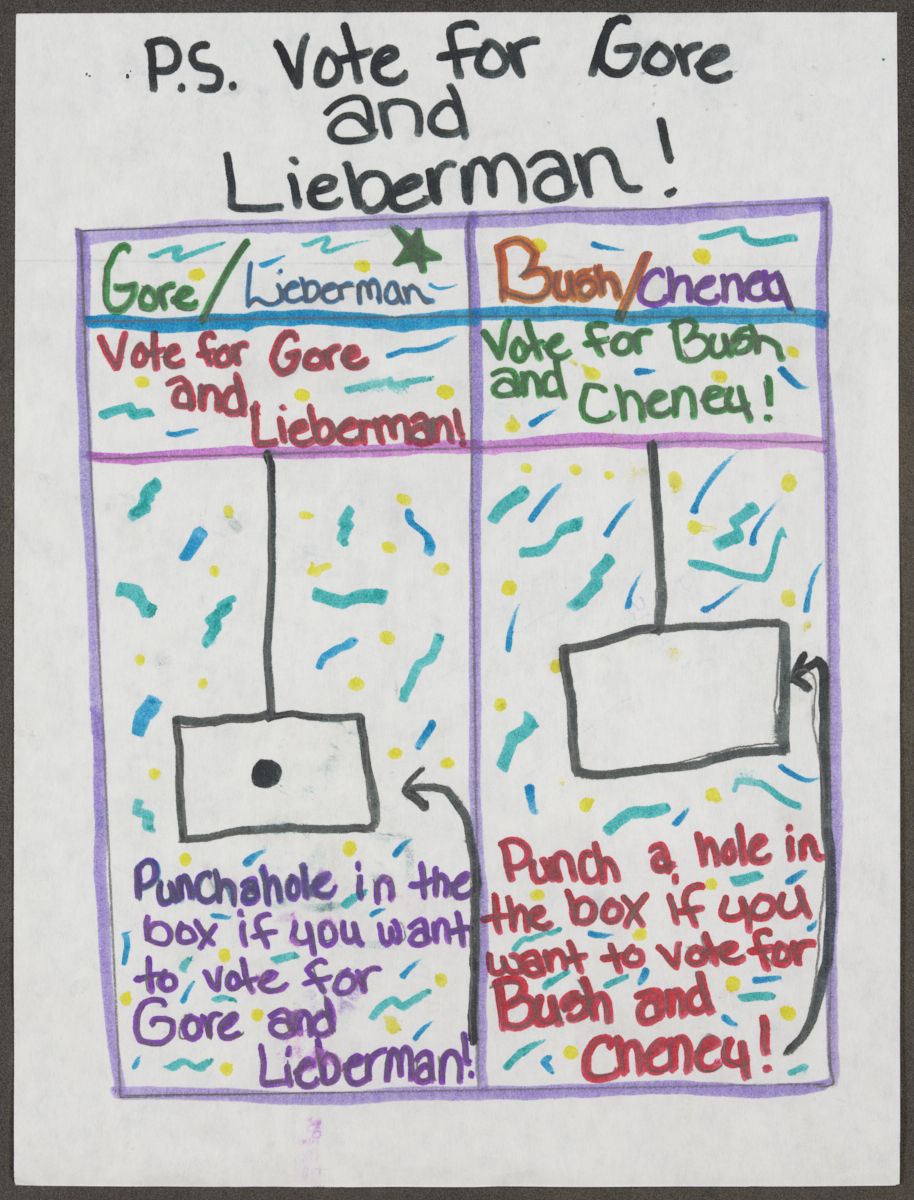 P.S. Vote for Gore
and
Lieberman!
Gore/Lieberman
Vote for Gore
and
Lieberman!
Punch a hole in the
box if you want
to vote for
Gore and
Lieberman!
Bush/Cheney
Vote for Bush
and Cheney!
Punch a hole in
the box if you
want to vote for
Bush and
Cheney!